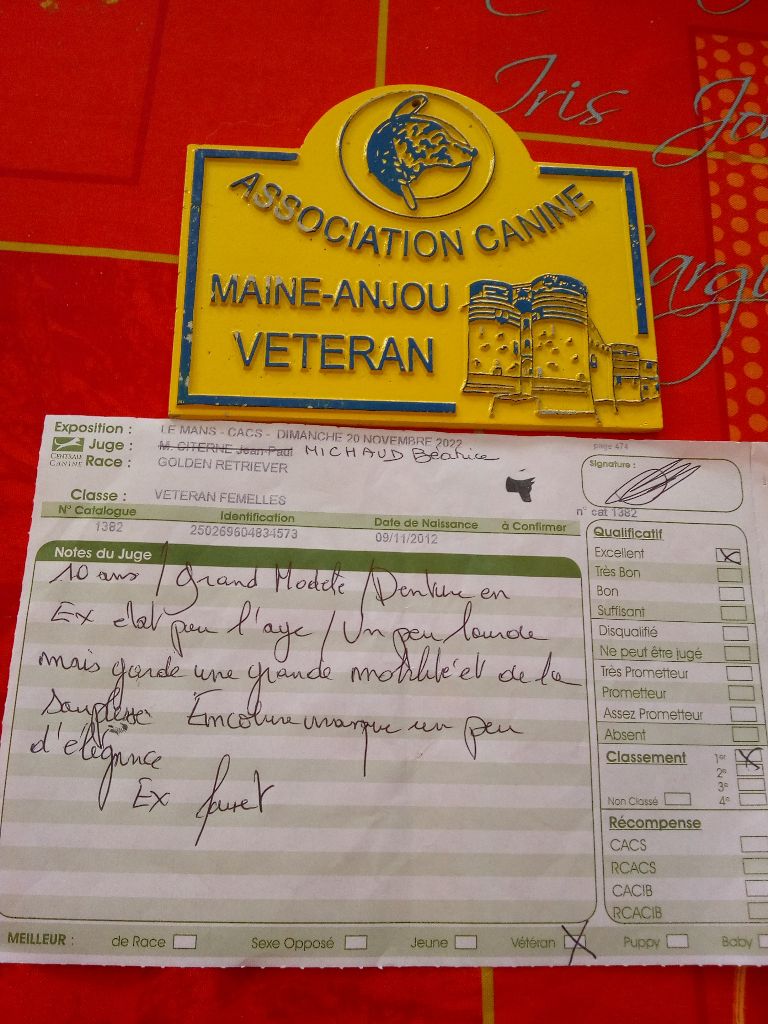 Iris
Jo
ASSOCIATION CANINE
MAINE-ANJOU
VETERAN
Exposition : LE MANS - CACS - DIMANCHE 20 NOVEMBRE 2022
page 474
Juge : M. CITERNE Jean Paul MICHAUD Béatrice
CENTRALE CANINE
Race : GOLDEN RETRIEVER
Signature :
Classe : VETERAN FEMELLES
n° cat 1382
N° Catalogue Identification Date de Naissance à Confirmer
1382 250269604834573 09/11/2012
Notes du Juge
10 ans / Grand Modèle / Denture en
Ex etat pour l'age / Un peu lourde
mais garde une grande mobilité et de la
souplesse Encolure manque un peu
d'élégance
Ex
Qualificatif
Excellent
Très Bon
Bon
Suffisant
Disqualifié
Ne peut être jugé
Très Prometteur
Prometteur
Assez Prometteur
Absent
Classement 1er
2e
3e
Non Classé 4e
Récompense
CACS
RCACS
CACIB
RCACIB
MEILLEUR : de Race Sexe Opposé Jeune Vétéran Puppy Baby